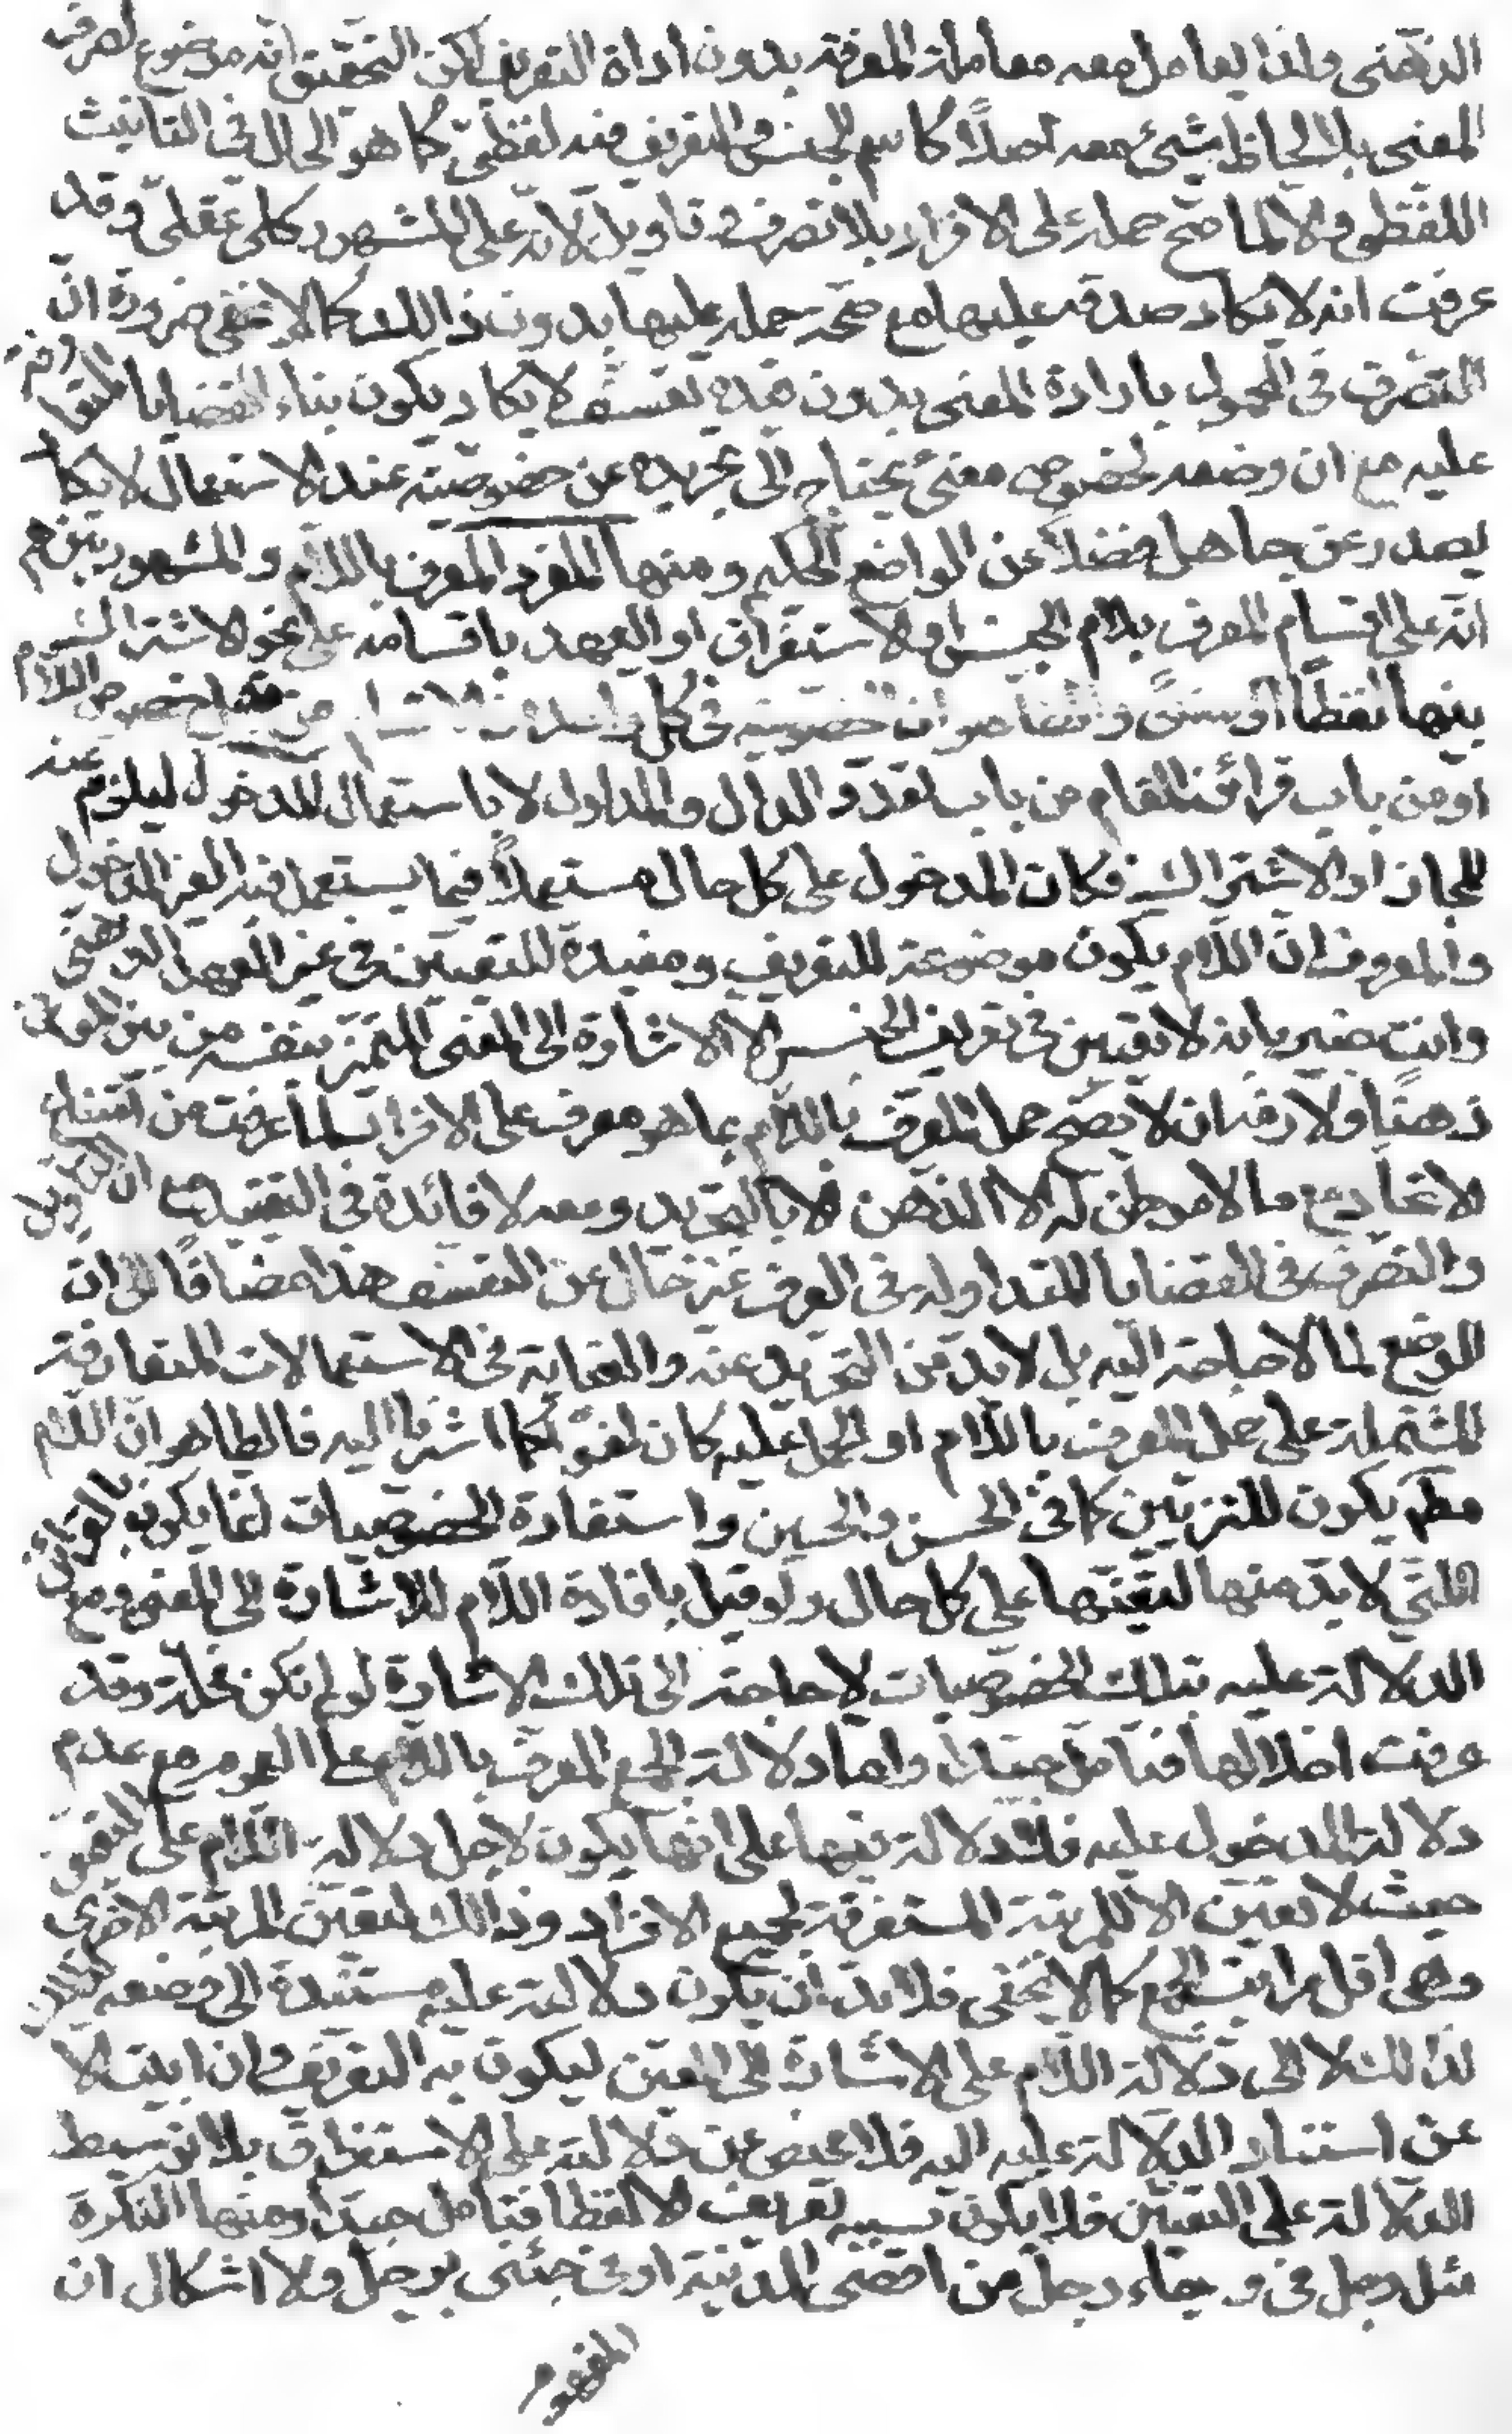 الذهنى ولذا يعامل معه معاملة المعرفة بدون اداة التعريف لكن التحقيق انه موضوع لصرف
المعنى بلا لحاظ شىء معه اصلًا كاسم الجنس والتعريف فيه لفظىّ كما هو الحال فى التانيث
اللفظى والّا لما صحّ حمله على الافراد بلا تصرف وتاويل لانّه على المشهور كلى عقلى وقد
عرفت انه لا يكاد صدقه عليها مع صحّة حمله عليها بدون ذالك كما لا يخفى ضرورة انّ
التصرف فى المحمول بارادة المعنى بدون قيده تعسّف لا يكاد يكون بناء القضايا المتعارفة
عليه مع ان وضعه لخصوص معنىً يحتاج الى تجريده عن خصوصيّته عند الاستعمال لا يكاد
يصدر عن جاهل فضلًا عن الواضع الحكيم ومنها المفرد المعرف باللّام والمشهور بينهم
انّه على اقسام المعرف بلام الجنس او الاستغراق او العهد باقسامه على نحو الاشتراك
بينها لفظًا او معنىً والظاهر ان الخصوصيّة فى كل واحد من الاقسام من قبل خصوص اللّام
او من باب قرائن المقام من باب تعدّد الدال والمدلول لا باستعمال المدخول ليلزم
المجاز او الاشتراك فكان المدخول على كل حال مستعملًا فيما يستعمل فيه الغير المدخول
والمعروف انّ اللّام يكون موضوعة للتعريف ومفيدة للتعيّن فى غير العهد الذهنى
وانت خبير بانه لا تعيّن فى تعريف الجنس الا الاشارة الى المعنى المتميّز بنفسه من بين المعانى
ذهنًا ولازمه ان لا يصحّ حمل المعرّف باللّام بما هو معرف على الافراد لما عرفت من امتناع
الاتحاد مع ما لا موطن له الا الذّهن الا بالتجريد ومعه لا فائدة فى التقييد مع ان التاويل
والتصرّف فى القضايا المتداولة فى العرف غير خال عن التعسف هذا مضافًا الى ان
الوضع لما لا حاجة اليه بل لا بدّ من التجريد عنه والغائه فى الاستعمالات المتعارفة
المشتملة على حمل المعرف باللّام او الحمل عليه كان لغوًا كما اشرنا اليه فالظاهر ان اللّام
مطلقا يكون للتزيين كما فى الحسن والحسين واستفادة الخصوصيات انما يكون بالقرائن
الّتى لا بدّ منها لتعيّنها على كل حال ولو قيل بافادة اللّام للاشارة الى المعنى ومع
الدلالة عليه بتلك الخصوصيات لا حاجة الى تلك الاشارة لو لم تكن مخلّة وقد
عرفت اخلالها فتامل جيّدًا وامّا دلالة الجمع المعرف باللّام على العموم مع عدم
دلالة المدخول عليه فلا دلالة فيها على انّها يكون لاجل دلالة اللّام على التعيّن
حيث لا تعيّن الا للمرتبة المستغرقة لجميع الافراد وذالك لتعيّن المرتبة الاخرى
وهى اقل مراتب الجمع كما لا يخفى فلا بدّ ان يكون دلالته عليه مستندة الى وضعه كذلك
لذالك لا الى دلالة اللّام على الاشارة الى المعيّن ليكون به التعريف وان ابيت الا
عن استناد الدلالة عليه اليه فلا محيص عن دلالته على الاستغراق بلا توسيط
الدّلالة على التعيّن فلا يكون بسببه تعريف الا لفظا فتامل جيّدًا ومنها النكرة
مثل رجل فى وجاء رجل من اقصى المدينة او فى جئنى برجل ولا اشكال ان
المفهوم